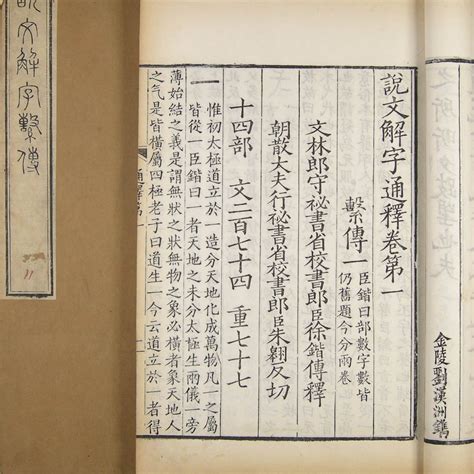 金陵劉漢洲鐫
說文解字通釋卷第一
繫傳一
臣鍇曰部數字數皆
仍舊題今分兩卷
文林郎守祕書省校書郎臣徐鍇傳釋
朝散大夫行祕書省校書郎臣朱翱反切
十四部 文二百七十四 重七十七
一
惟初太極道立於一造分天地化成萬物凡一之
皆從一臣鍇曰一者天地之未分太極生兩儀一旁
薄始結之義是謂無狀之狀無物之象必橫者象天地人
之气是皆橫屬四極老子曰道生一今云道立於一者得
通釋
說文解字繫傳
11